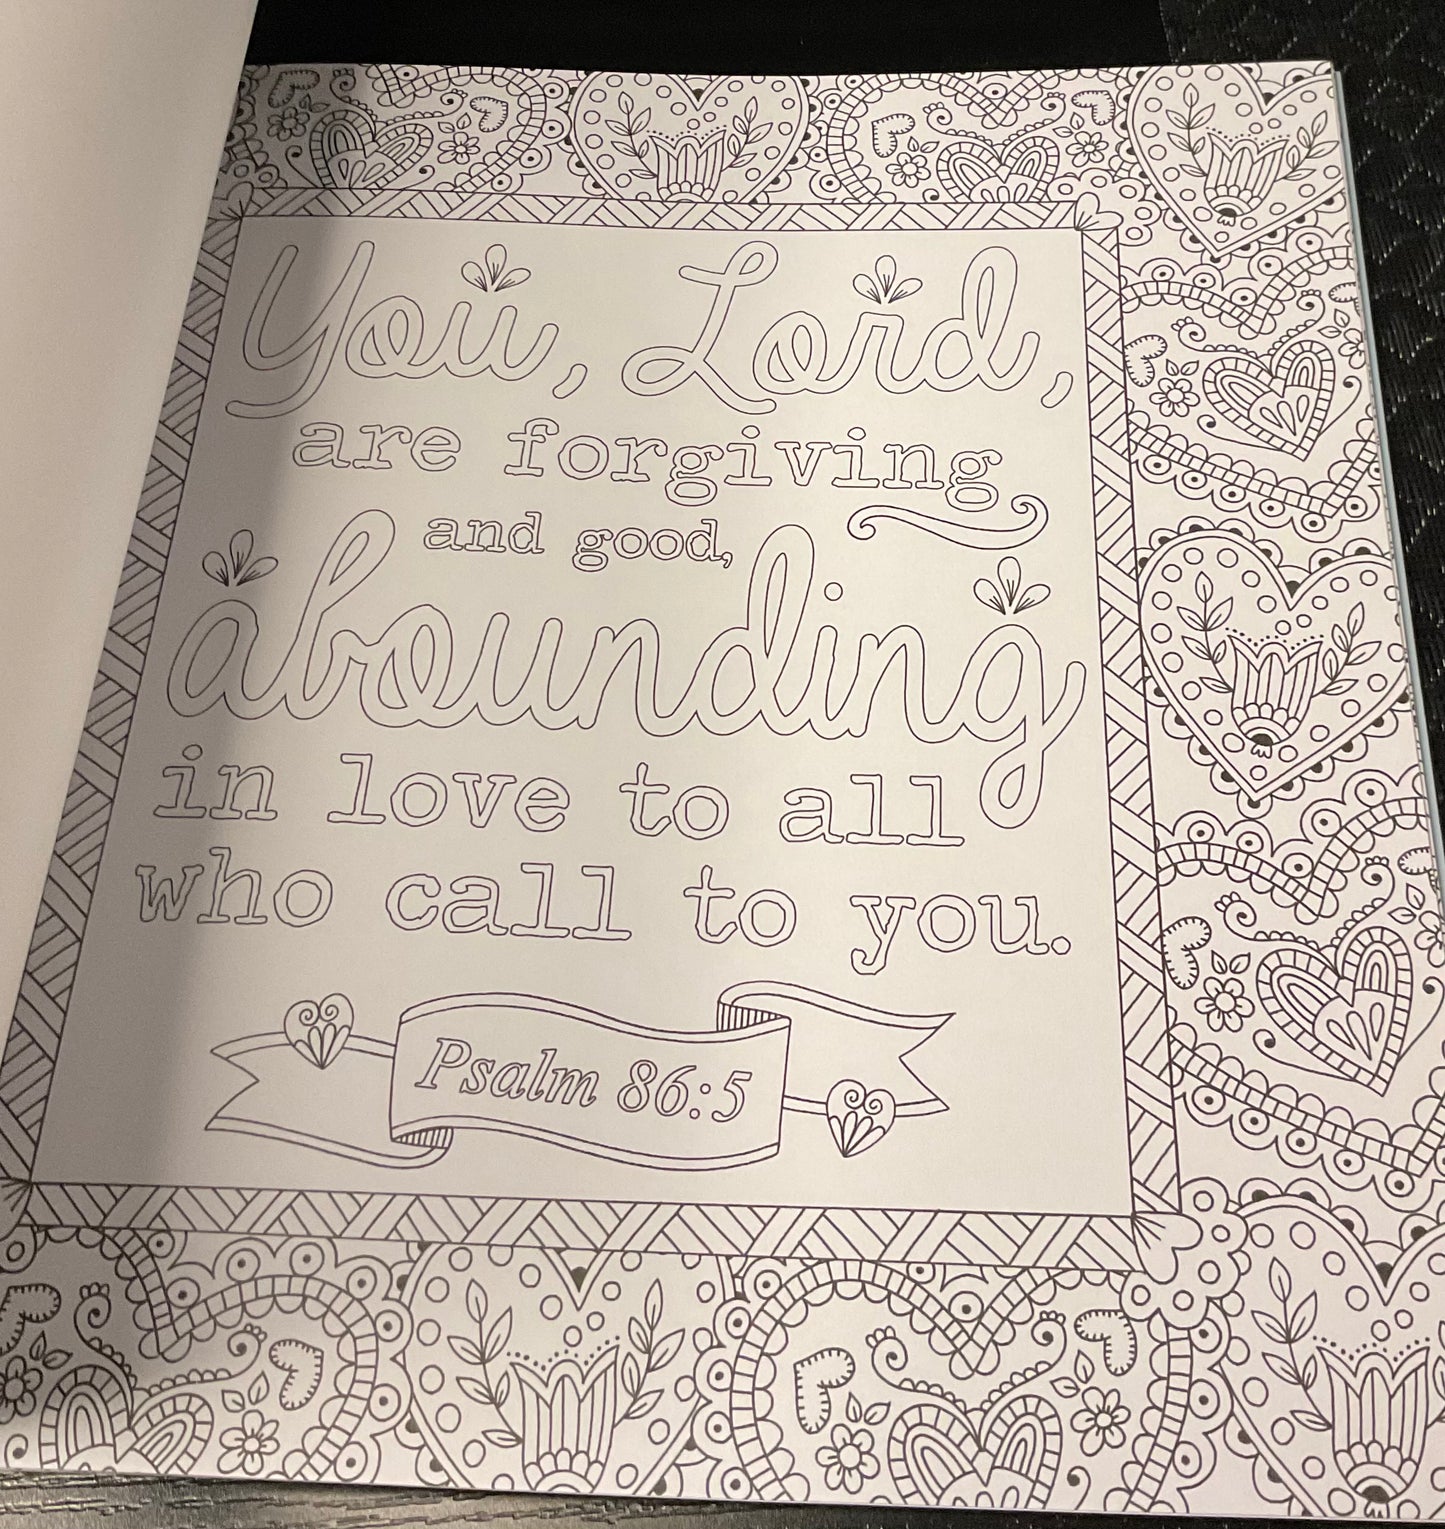 You, Lord,
are forgiving
and good,
abounding
in love to all
who call to you.
Psalm 86:5